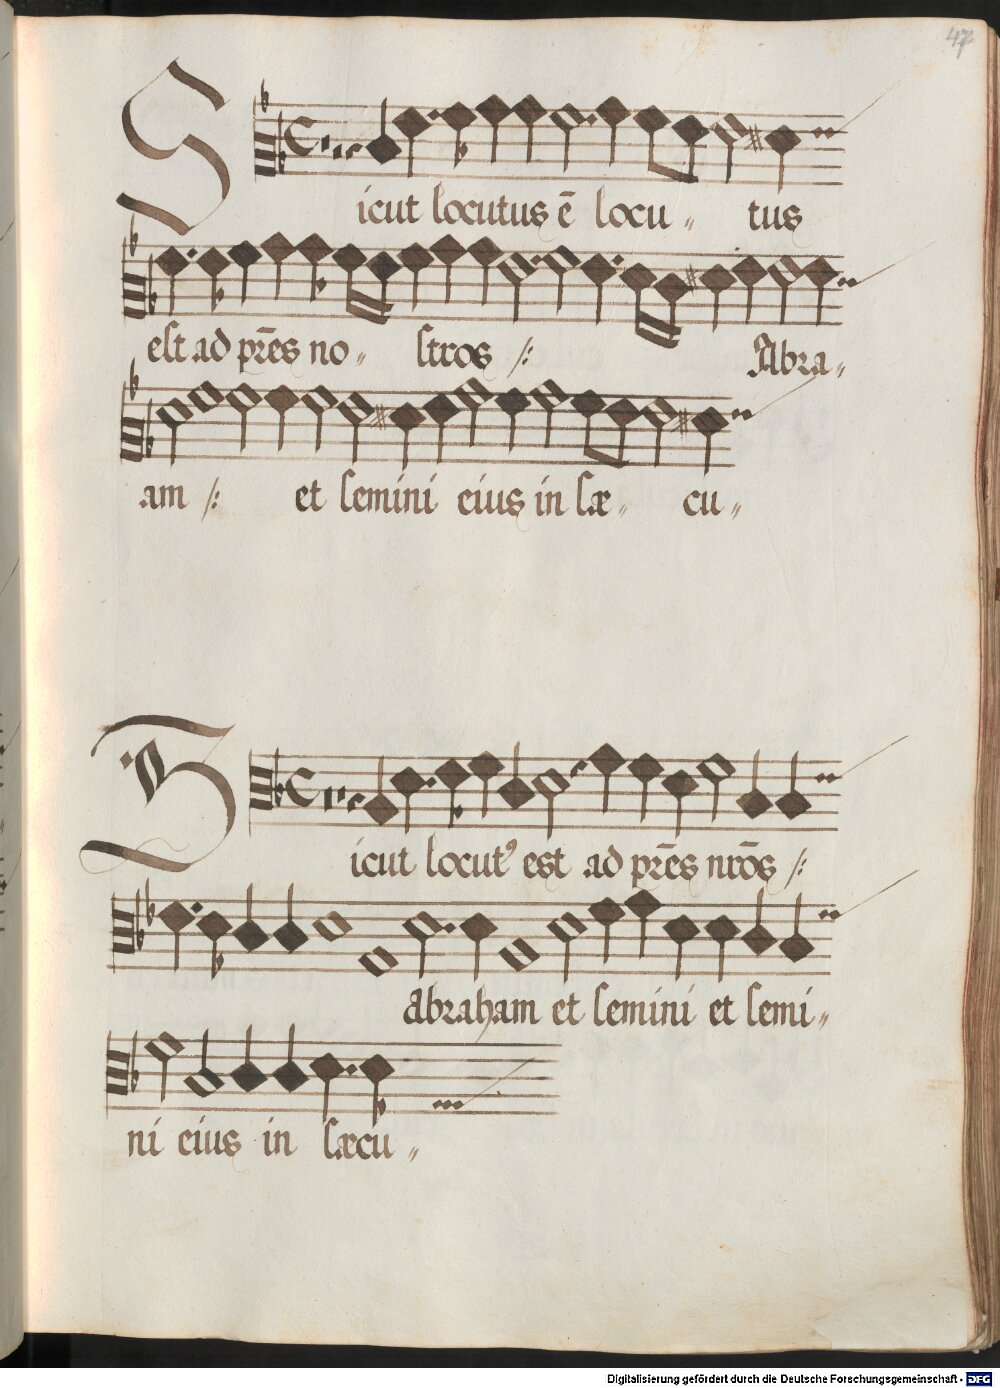 47
Sicut locutus ē locu〃 tus
est ad pr̄es no〃 stros /: Abra〃
am /: et semini eius in sæ〃 cu〃
Sicut locutꝰ est ad pr̄es nr̄os /:
Abraham et semini et semi〃
ni eius in sæcu〃
Digitalisierung gefördert durch die Deutsche Forschungsgemeinschaft - DFG